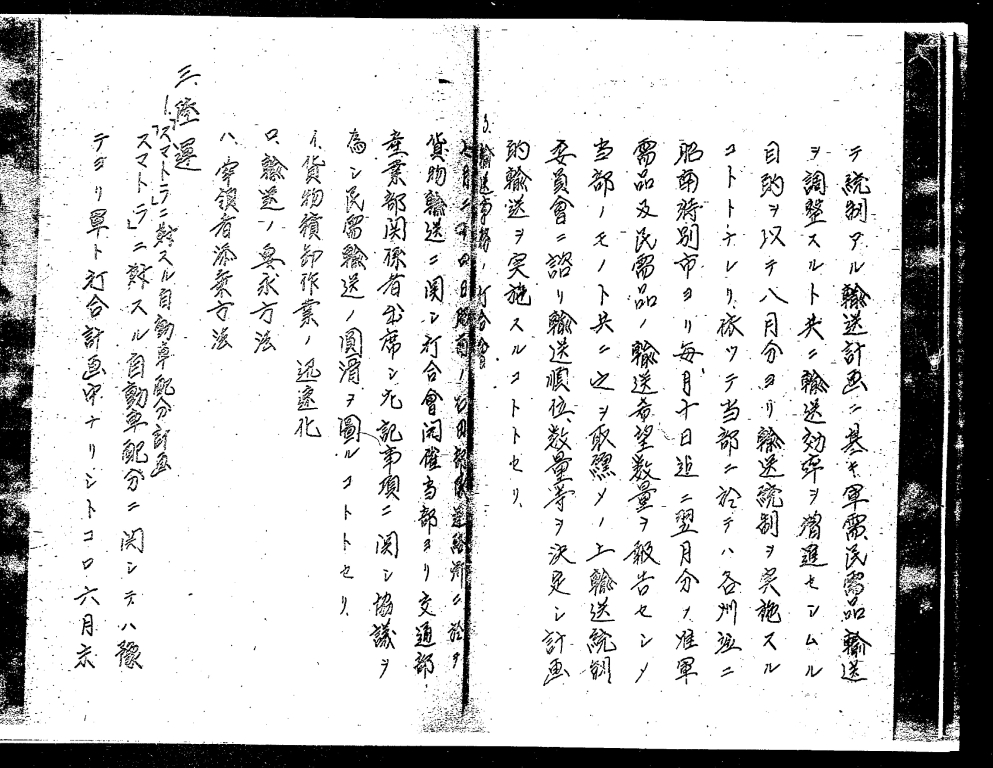 テ統制アル輸送計画ニ基キ軍需民需品輸送
ヲ調整スルト共ニ輸送効率ヲ増進セシムル
目的ヲ以テ八月分ヨリ輸送統制ヲ実施スル
コトトナレリ依ツテ当部ニ於テハ各州並ニ
昭南特別市ヨリ毎月十日迄ニ翌月分ノ准軍
需品及民需品ノ輸送希望数量ヲ報告セシメ
当部ノモノト共ニ之ヲ取纒メノ上輸送統制
委員會ニ諮リ輸送順位、数量等ヲ決定シ計画
的輸送ヲ実施スルコトトセリ
3. 輸送事務ノ打合會
七月二十四日昭南ノ 於テ
貨物輸送ニ関シ打合會開催当部ヨリ交通部
産業部関係者出席シ左記事項ニ関シ協議ヲ
為シ民需輸送ノ圓滑ヲ圖ルコトトセリ
イ、貨物積卸作業ノ迅速化
ロ、輸送ノ要求方法
ハ、宰領者添乗方法
三、陸運
1.「スマトラ」ニ対スル自動車配分計画
「スマトラ」ニ対スル自動車配分ニ関シテハ豫
テヨリ軍ト打合計画中ナリシトコロ六月末